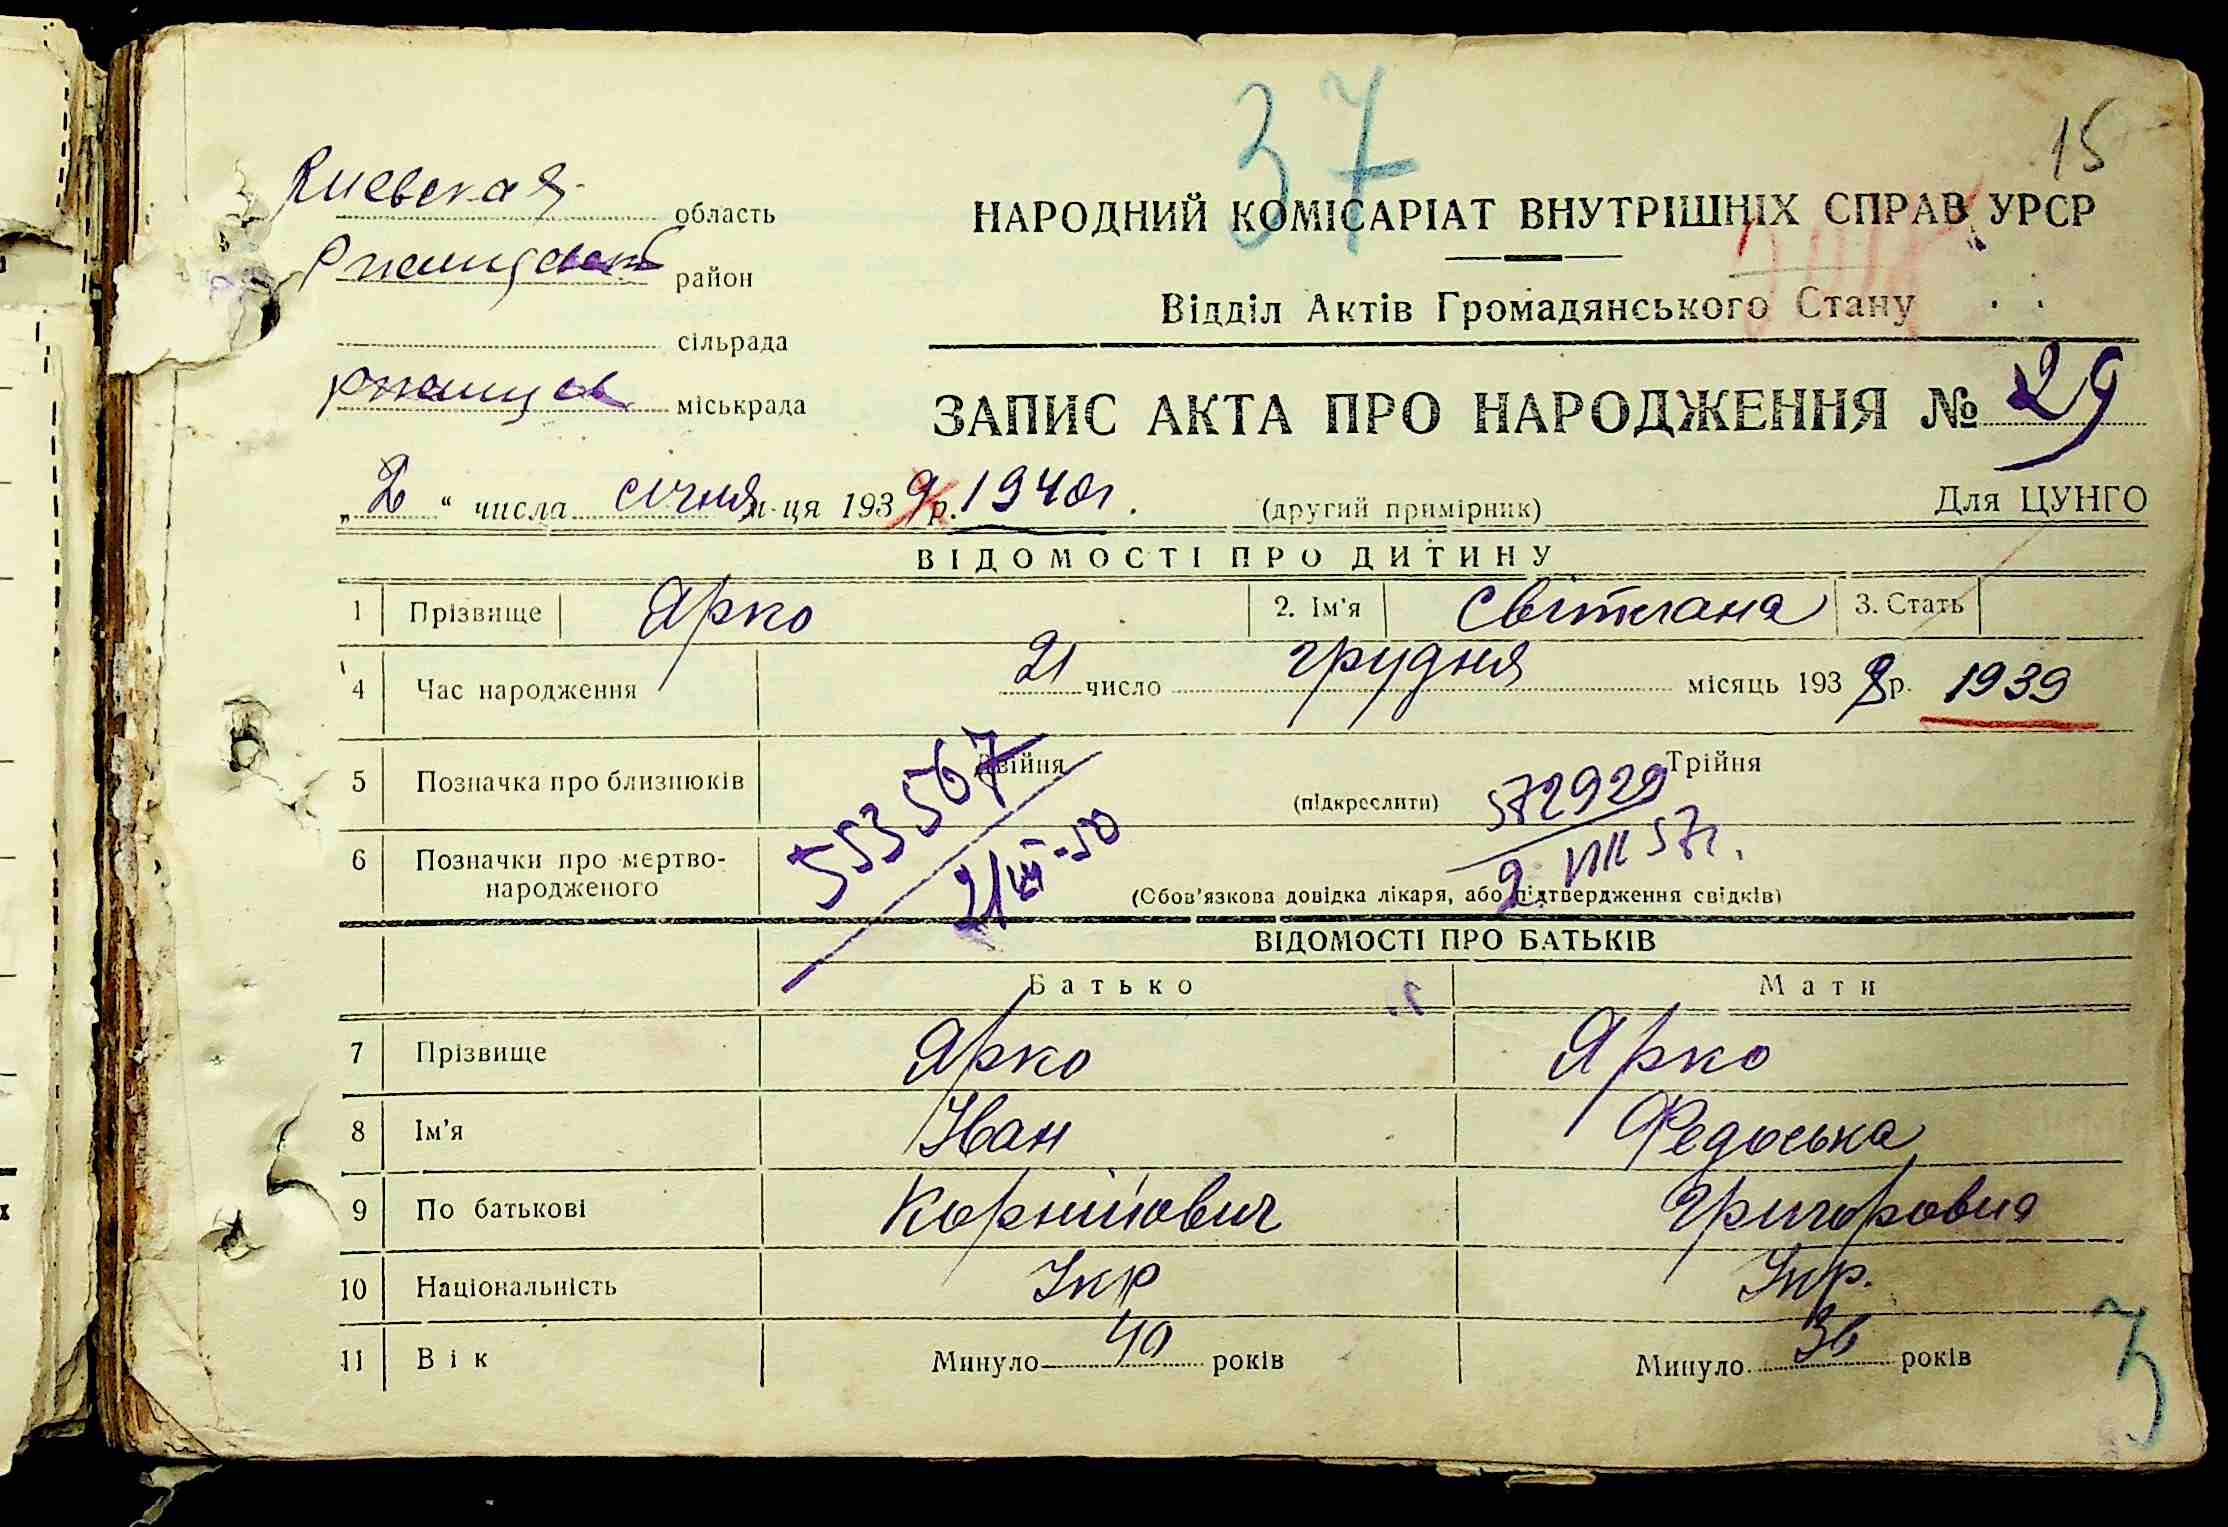 37
15
Киевская область
НАРОДНИЙ КОМІСАРІАТ ВНУТРІШНІХ СПРАВ УРСР
район
Відділ Актів Громадянського Стану
сільрада
міськрада
ЗАПИС АКТА ПРО НАРОДЖЕННЯ № 29
„2“ числа січня м-ця 1939 р. 1940 г.
(другий примірник)
Для ЦУНГО
ВІДОМОСТІ ПРО ДИТИНУ
1 Прізвище Ярко 2. Ім'я Світлана 3. Стать
4 Час народження 21 число грудня місяць 1938 р. 1939
5 Позначка про близнюків Двійня (підкреслити) Трійня
553567
21/III-50
572929
2 VIII 57г.
6 Позначки про мертво-
народженого
(Обов'язкова довідка лікаря, або підтвердження свідків)
ВІДОМОСТІ ПРО БАТЬКІВ
Батько Мати
7 Прізвище Ярко Ярко
8 Ім'я Іван Федоська
9 По батькові Корнійович Григоровна
10 Національність Укр Укр.
11 Вік Минуло 40 років Минуло 36 років
3